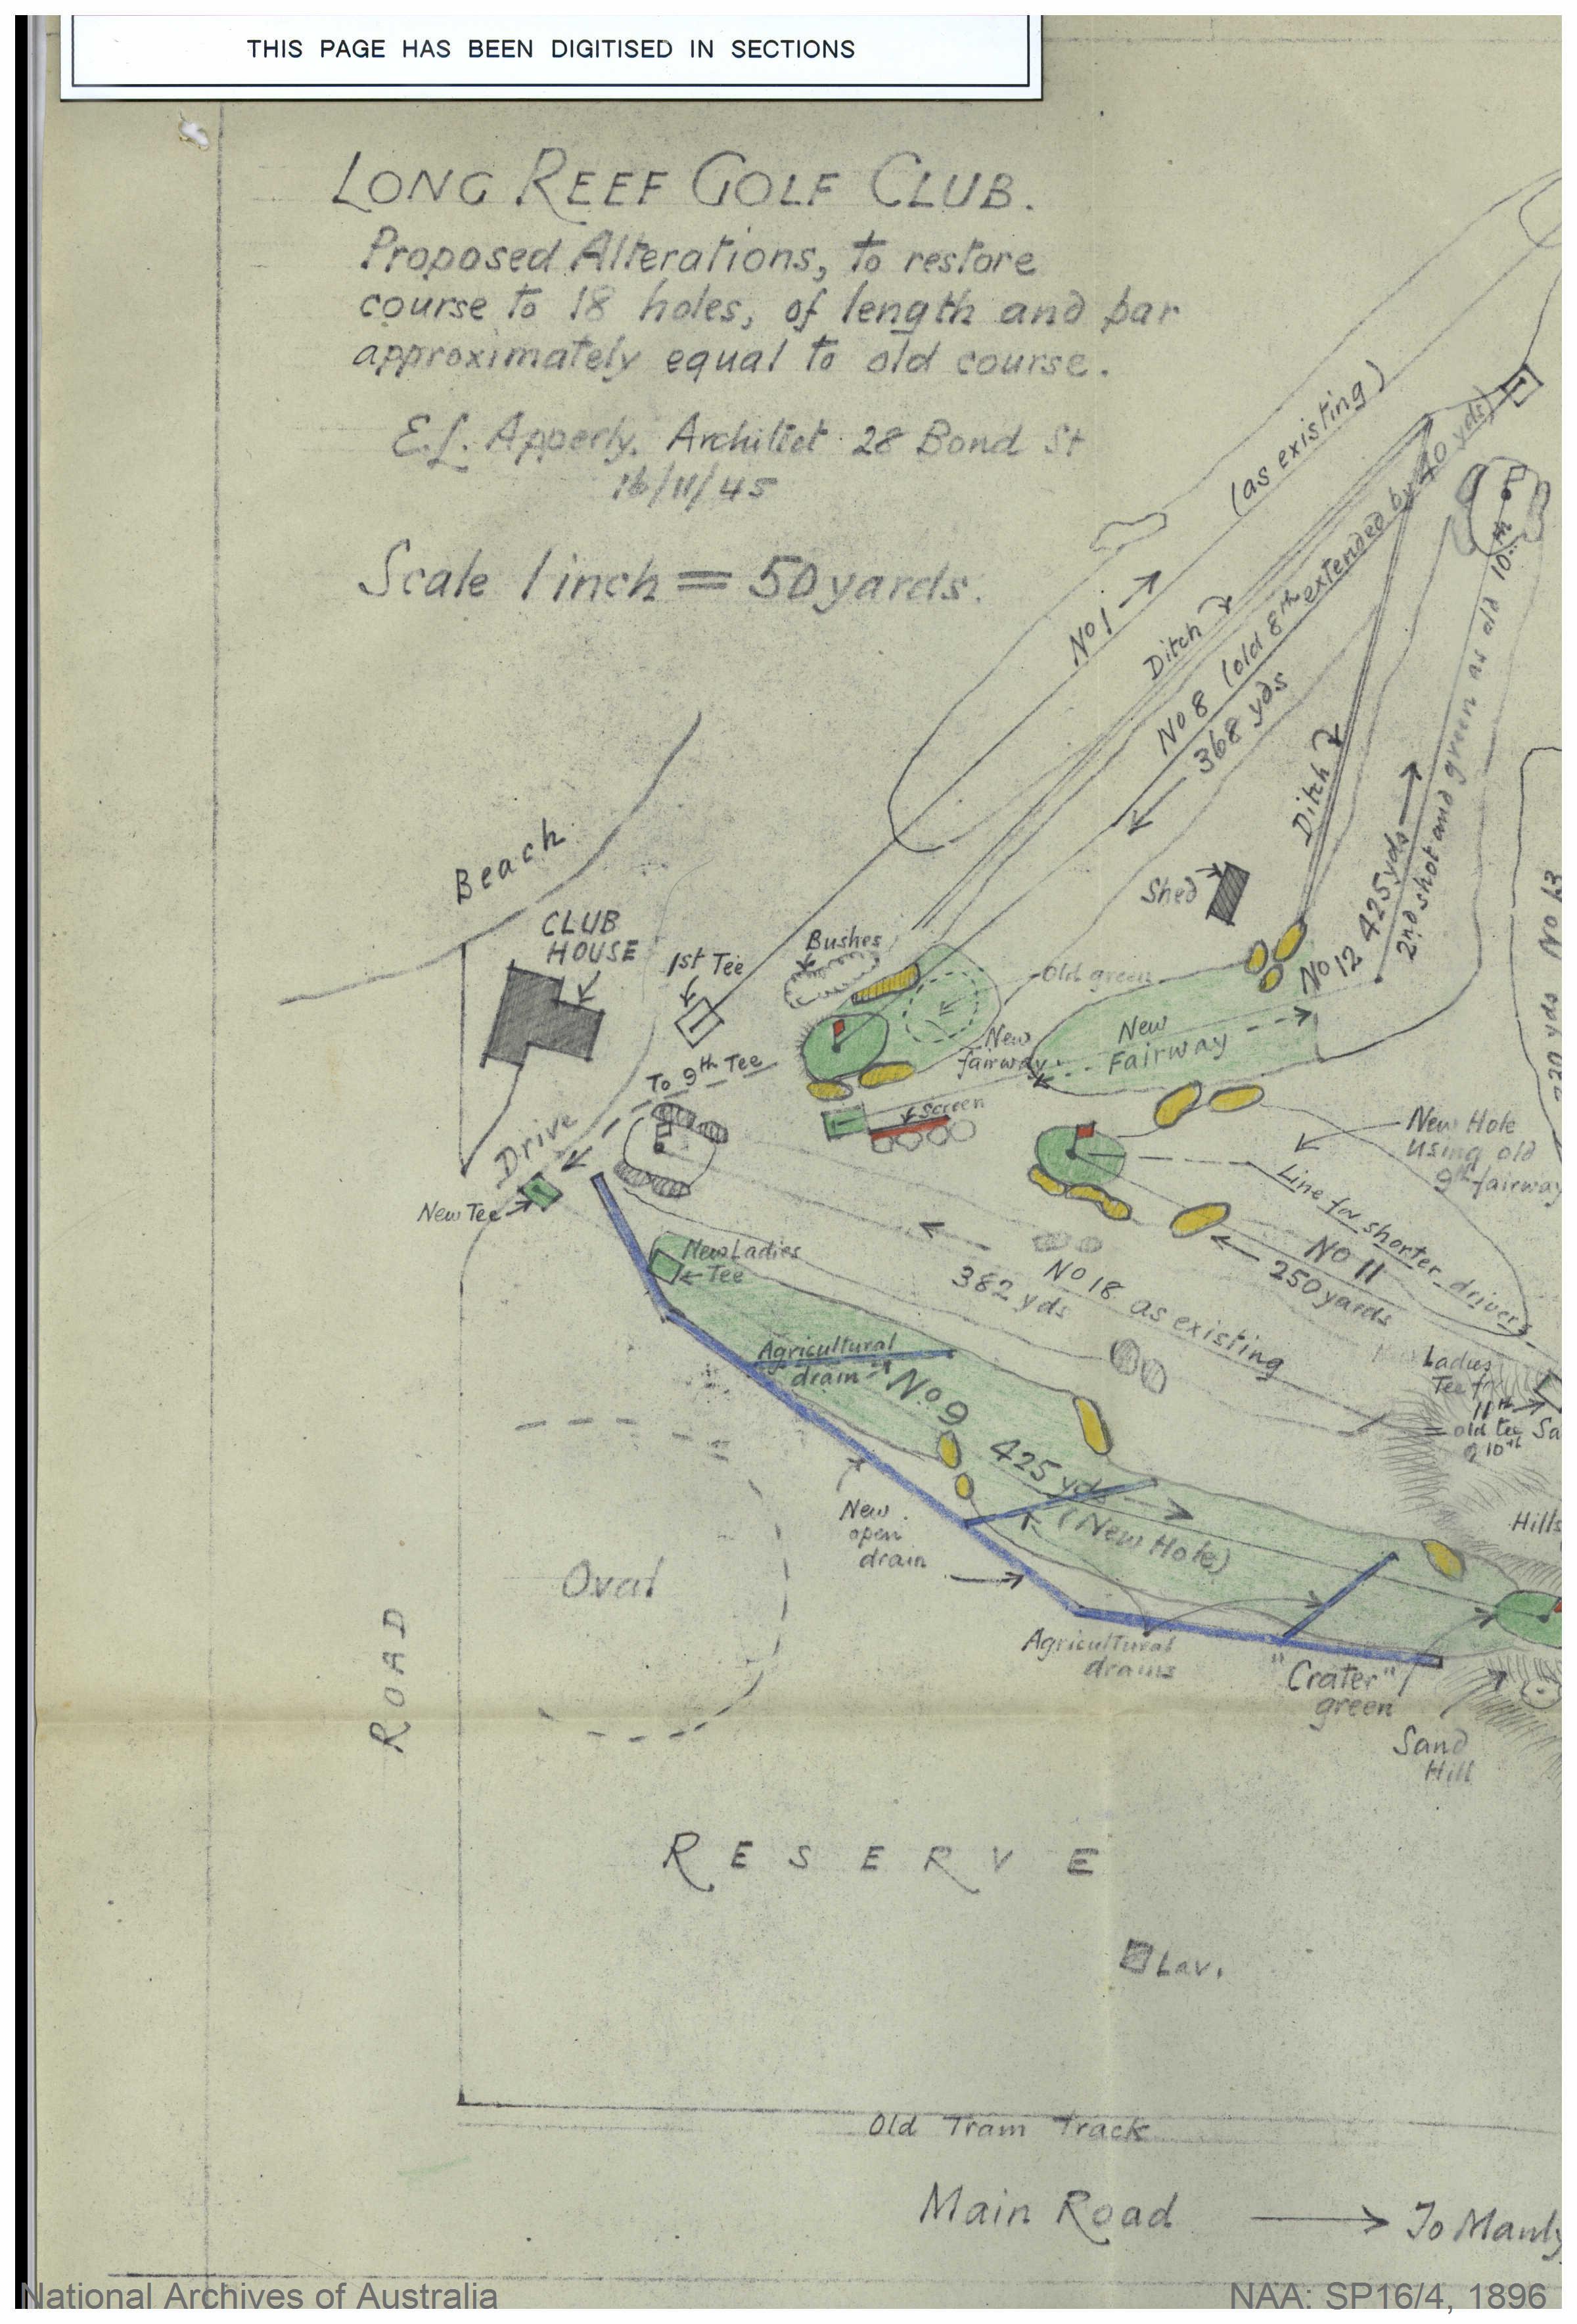 THIS PAGE HAS BEEN DIGITISED IN SECTIONS
LONG REEF GOLF CLUB.
Proposed Alterations, to restore
course to 18 holes, of length and par
approximately equal to old course.
E.L. Apperly. Architect 28 Bond St
16/11/45
Scale 1 inch = 50 yards.
No 1
(as existing)
Ditch
No 8 (old 8th extended by 40 yds)
368 yds
Ditch
No 12 425 yds
2nd shot and green as old 10th
No 13
yds
Shed
Beach
CLUB
HOUSE
1st Tee
Bushes
Old green
New
fairway
New
Fairway
To 9th Tee
Screen
Drive
New Tee
New Hole
using old
9th fairway
Line for shorter drivers
No 11
250 yards
New Ladies
Tee
No 18 as existing
382 yds
Ladies
Tee for
11th
old tee
10th
Sa
Agricultural
drain
No. 9
425 yds
(New Hole)
New
open
drain
Hills
Oval
Agricultural
drains
"Crater"
green
Sand
Hill
ROAD
RESERVE
Lav.
Old Tram Track
Main Road
To Manly
National Archives of Australia
NAA: SP16/4, 1896